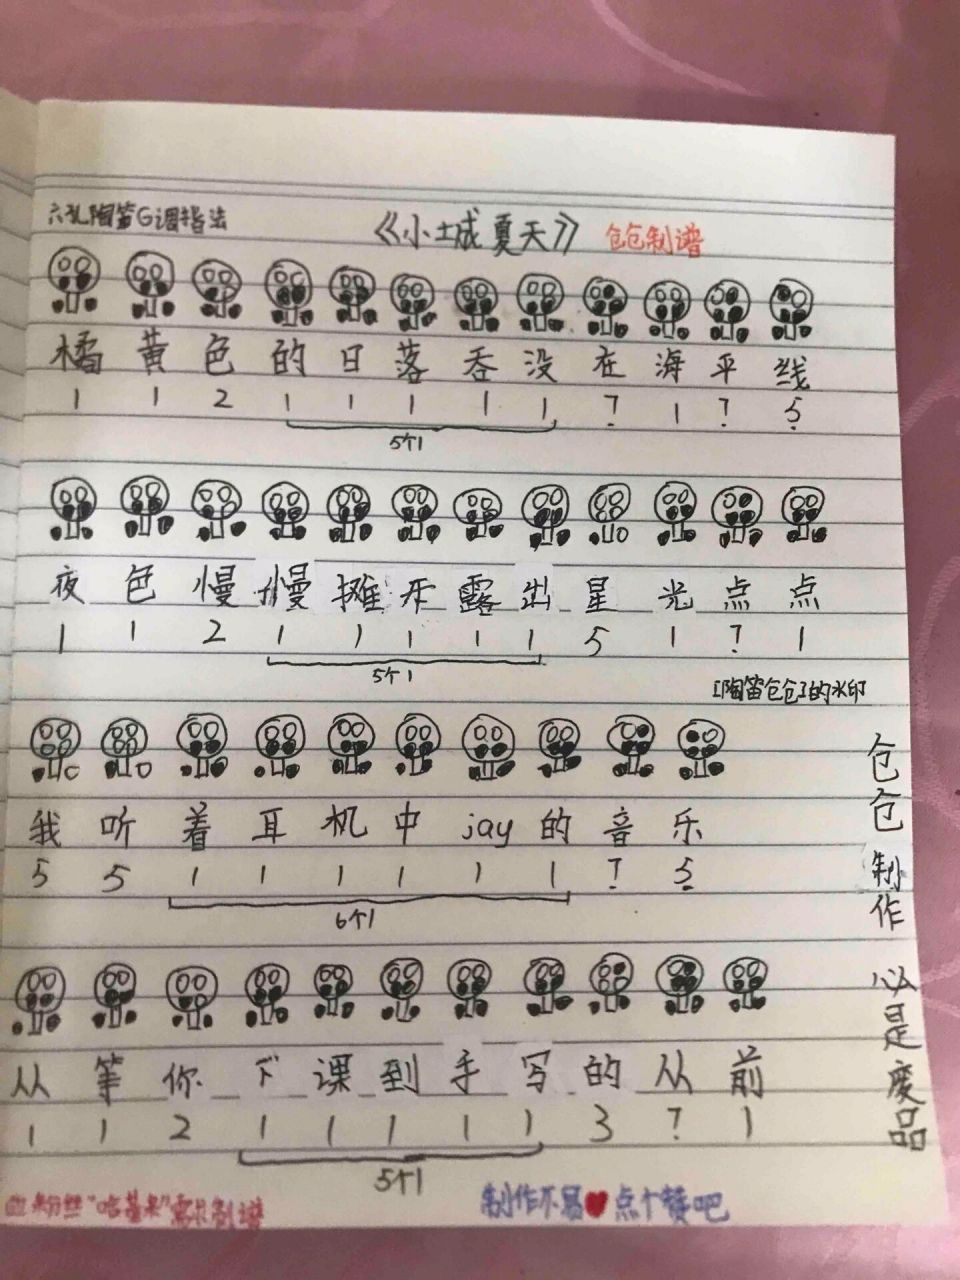 六孔陶笛G调指法 《小城夏天》 仓仓制谱
橘 黄 色 的 日 落 吞 没 在 海 平 线
1 1 2 1 1 1 1 1 7̣ 1 7̣ 5̣
5个1
夜 色 慢 慢 摊 开 露 出 星 光 点 点
1 1 2 1 1 1 1 1 5 1 7̣ 1
5个1
[陶笛仓仓]的水印
我 听 着 耳 机 中 jay 的 音 乐
5 5 1 1 1 1 1 1 7̣ 5̣
6个1
从 等 你 下 课 到 手 写 的 从 前
1 1 2 1 1 1 1 1 3 7̣ 1
5个1
仓仓制作
必是废品
粉丝
制作不易❤点个赞吧